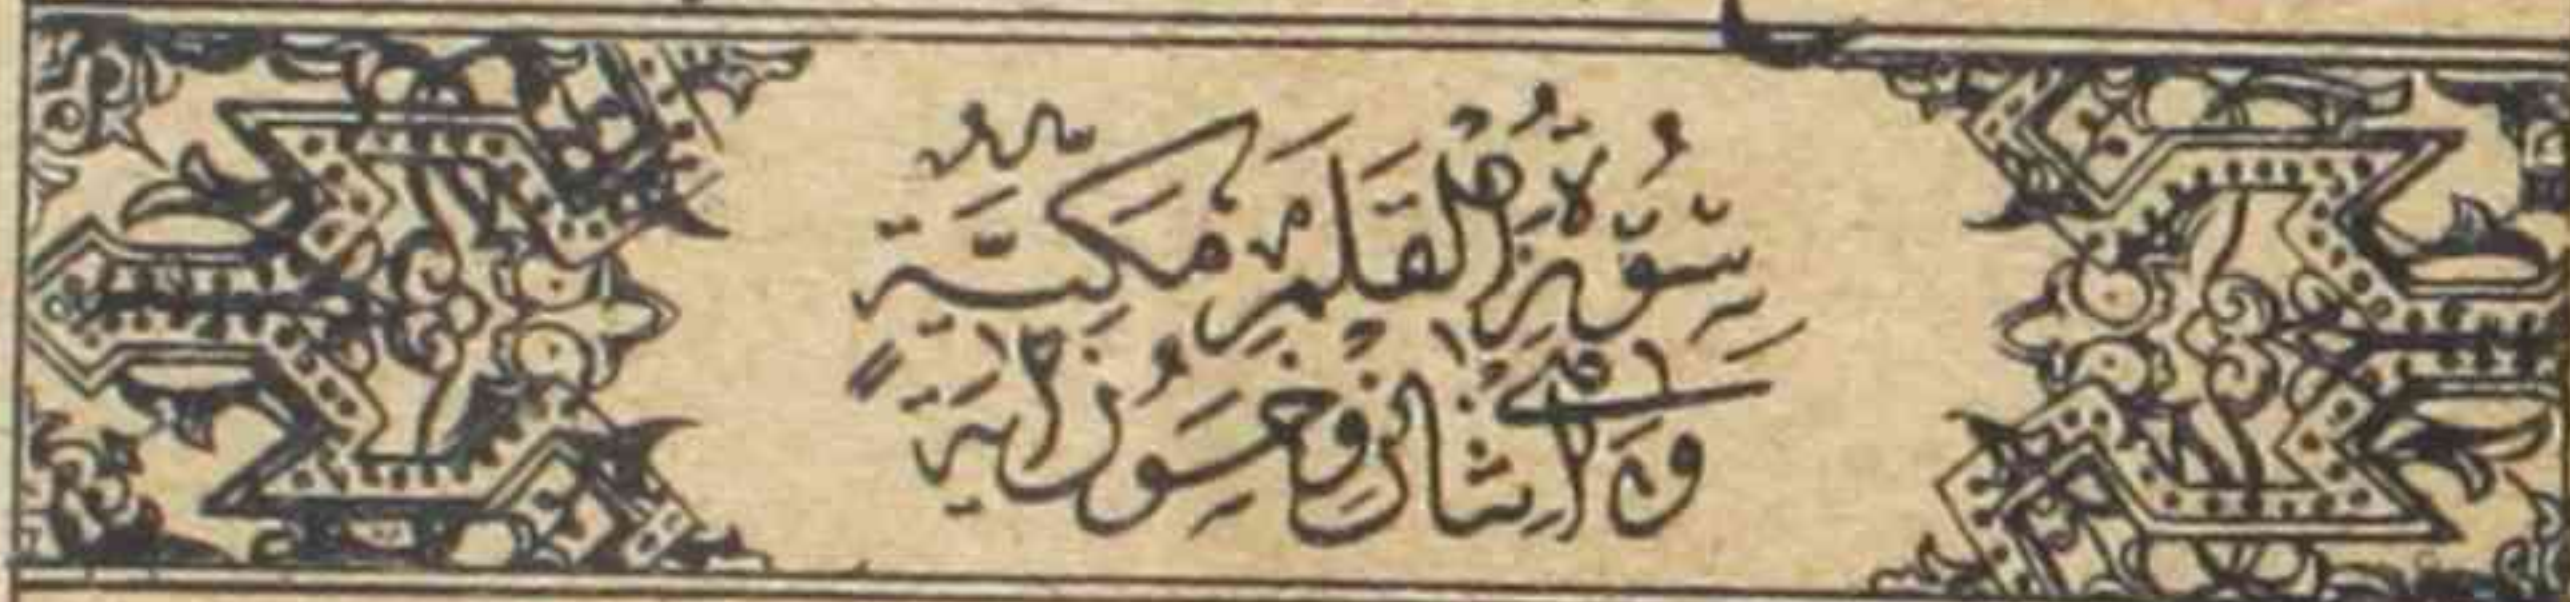 سُوْرَةُ الْقَلَمِ مَكِّيَّةٌ
وَهِيَ اثْنَانِ وَخَمْسُوْنَ اٰيَةً